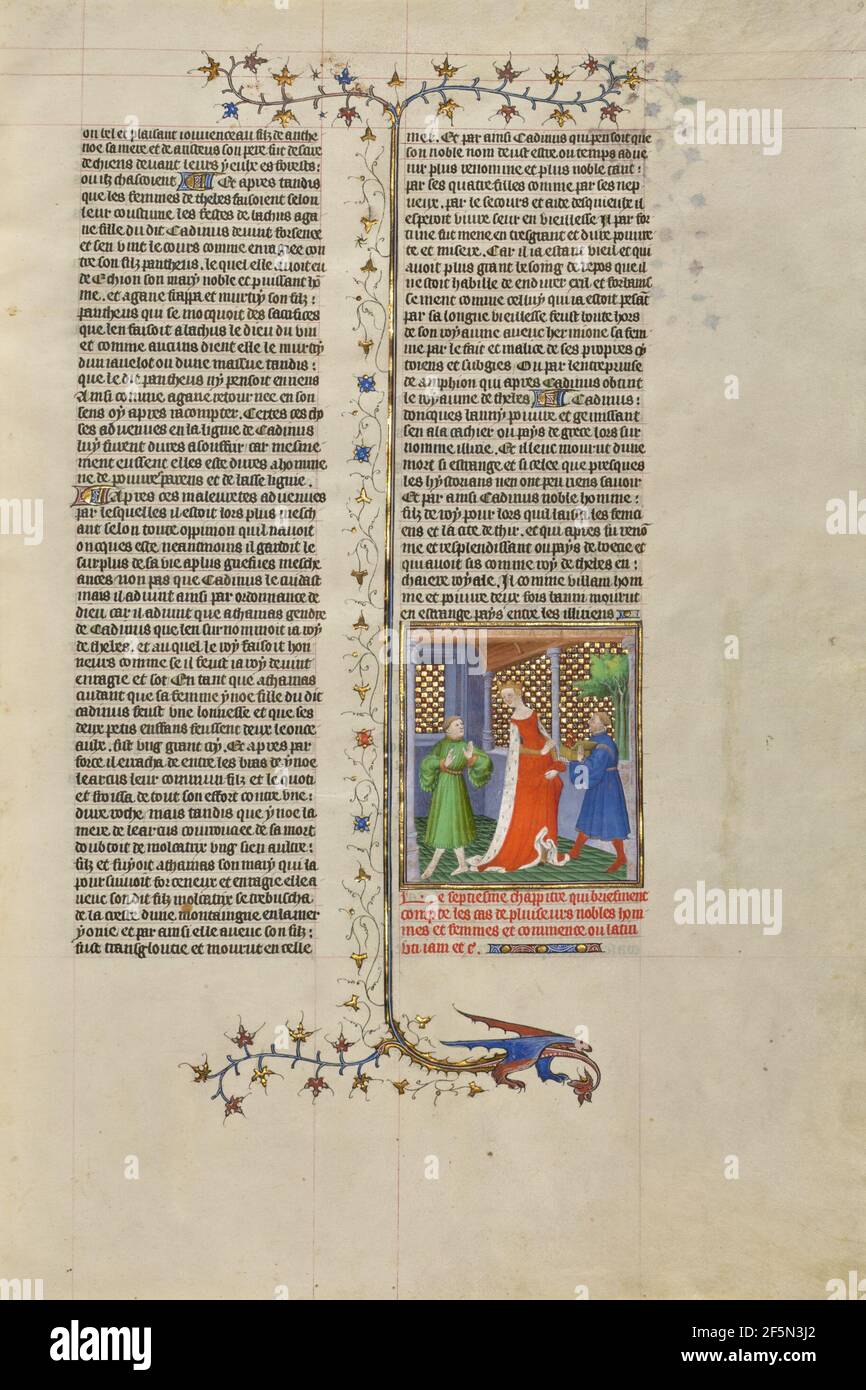 ou bel et plaisant iouuenceau filz de anthe
noe sa mere et de austeus son pere fut desire
de chiens deuant leurs yeulx es forests:
ou ilz chassoient Et apres tandis
que les femmes de thebes faisoient selon
leur coustume les festes de bachus aga
ne fille du dit Cadmus deuint forsence
et sen vint le cours comme enragiee con
tre son filz pantheus. le quel elle auoit eu
de Echion son mary noble et puissant hō
me. et agane frappa et murtry son filz:
pantheus qui se mocquoit des sacrifices
que len faisoit a bachus le dieu du vin
et comme aucuns dient elle le murtry
dun iauelot ou dune massue tandis:
que le dit pantheus ny pensoit en riens
Ainsi comme agane retournee en son
sens oy apres racompter. Certes ces cho
ses aduenues en la lignie de Cadmus
luy furent dures a souffrir car mesme
ment eussent elles este dures a homme
ne de poures parens et de basse lignie.
Apres ces maleuretes aduenues
par lesquelles il estoit lors plus mesch
ant selon toute oppinion quil nauoit
oncques este neantmoins il gardoit le
surplus de sa vie a plus griefues mesche
ances non pas que Cadmus le cuidast
mais il aduint ainsi par ordonnance de
dieu car il aduint que athamas gendre
de Cadmus que len surnommoit ia roy
de thebes. et au quel le roy faisoit hon
neurs comme se il feust ia roy deuint
enragie et sot En tant que athamas
cuidant que sa femme ynoe fille du dit
cadmus feust vne lionnesse et que ses
deux petis enffans feussent deux leonce
aulx. fist vng grant cry. Et apres par
force il erracha de entre les bras de ynoe
learcus leur commun filz et le quoti
et froissa de tout son effort contre vne:
dure roche mais tandis que ynoe la
mere de learcus courroucee de sa mort
doubtoit de molcatrix vng sien aultre:
filz et fuyoit athamas son mary qui la
poursuiuoit forceneux et enragie elle a
uecuc son dit filz molcatrix se trebuscha
de la creste dune montaingne en la mer
yonie. et par ainsi elle auecuc son filz:
fust transgloutie et mourut en celle
mer. Et par ainsi Cadmus qui pensoit que
son noble nom deust estre ou temps adue
nir plus renomme et plus noble tant:
par ses quatre filles comme par ses nep
ueux. par le secours et aide desquieulx il
esperoit viure seur en vieillesse Il par for
tune fut mene en tresgrant et dure pouure
te et misere. Car il ia estant vieil et qui
auoit plus grant besoing de repos que il
nestoit habille de endurer exil et forbanis
sement comme celluy qui ia estoit pesāt
par sa longue vieillesse feust boute hors
de son royaume auecuc hermione sa fem
me par le fait et malice de ses propres cy
toiens et subgies. Ou par lentreprinse
de amphion qui apres Cadmus obtint
le royaume de thebes Cadmus:
doncques banny poure et gemissant
sen ala cachier ou pays de grece lors sur
nomme illirie. Et illeuc mourut dune
mort si estrange et si celee que presques
les hystorians nen ont peu riens sauoir
Et par ainsi Cadmus noble homme:
filz de roy pour lors qui laissa les fenici
ens et la cite de thir. et qui apres fu renō
me et resplendissant ou pays de boecie et
qui auoit sis comme roy de thebes en:
chaiere royale. Il comme villain hom
me et poure deux fois banni mourut
en estrange pays entre les illiriens
Le septiesme chappitre qui briefment
compte les cas de pluseurs nobles hom-
mes et femmes et commence ou latin
vti iam et cͤ.
alamy
2F5N3J2
www.alamy.com